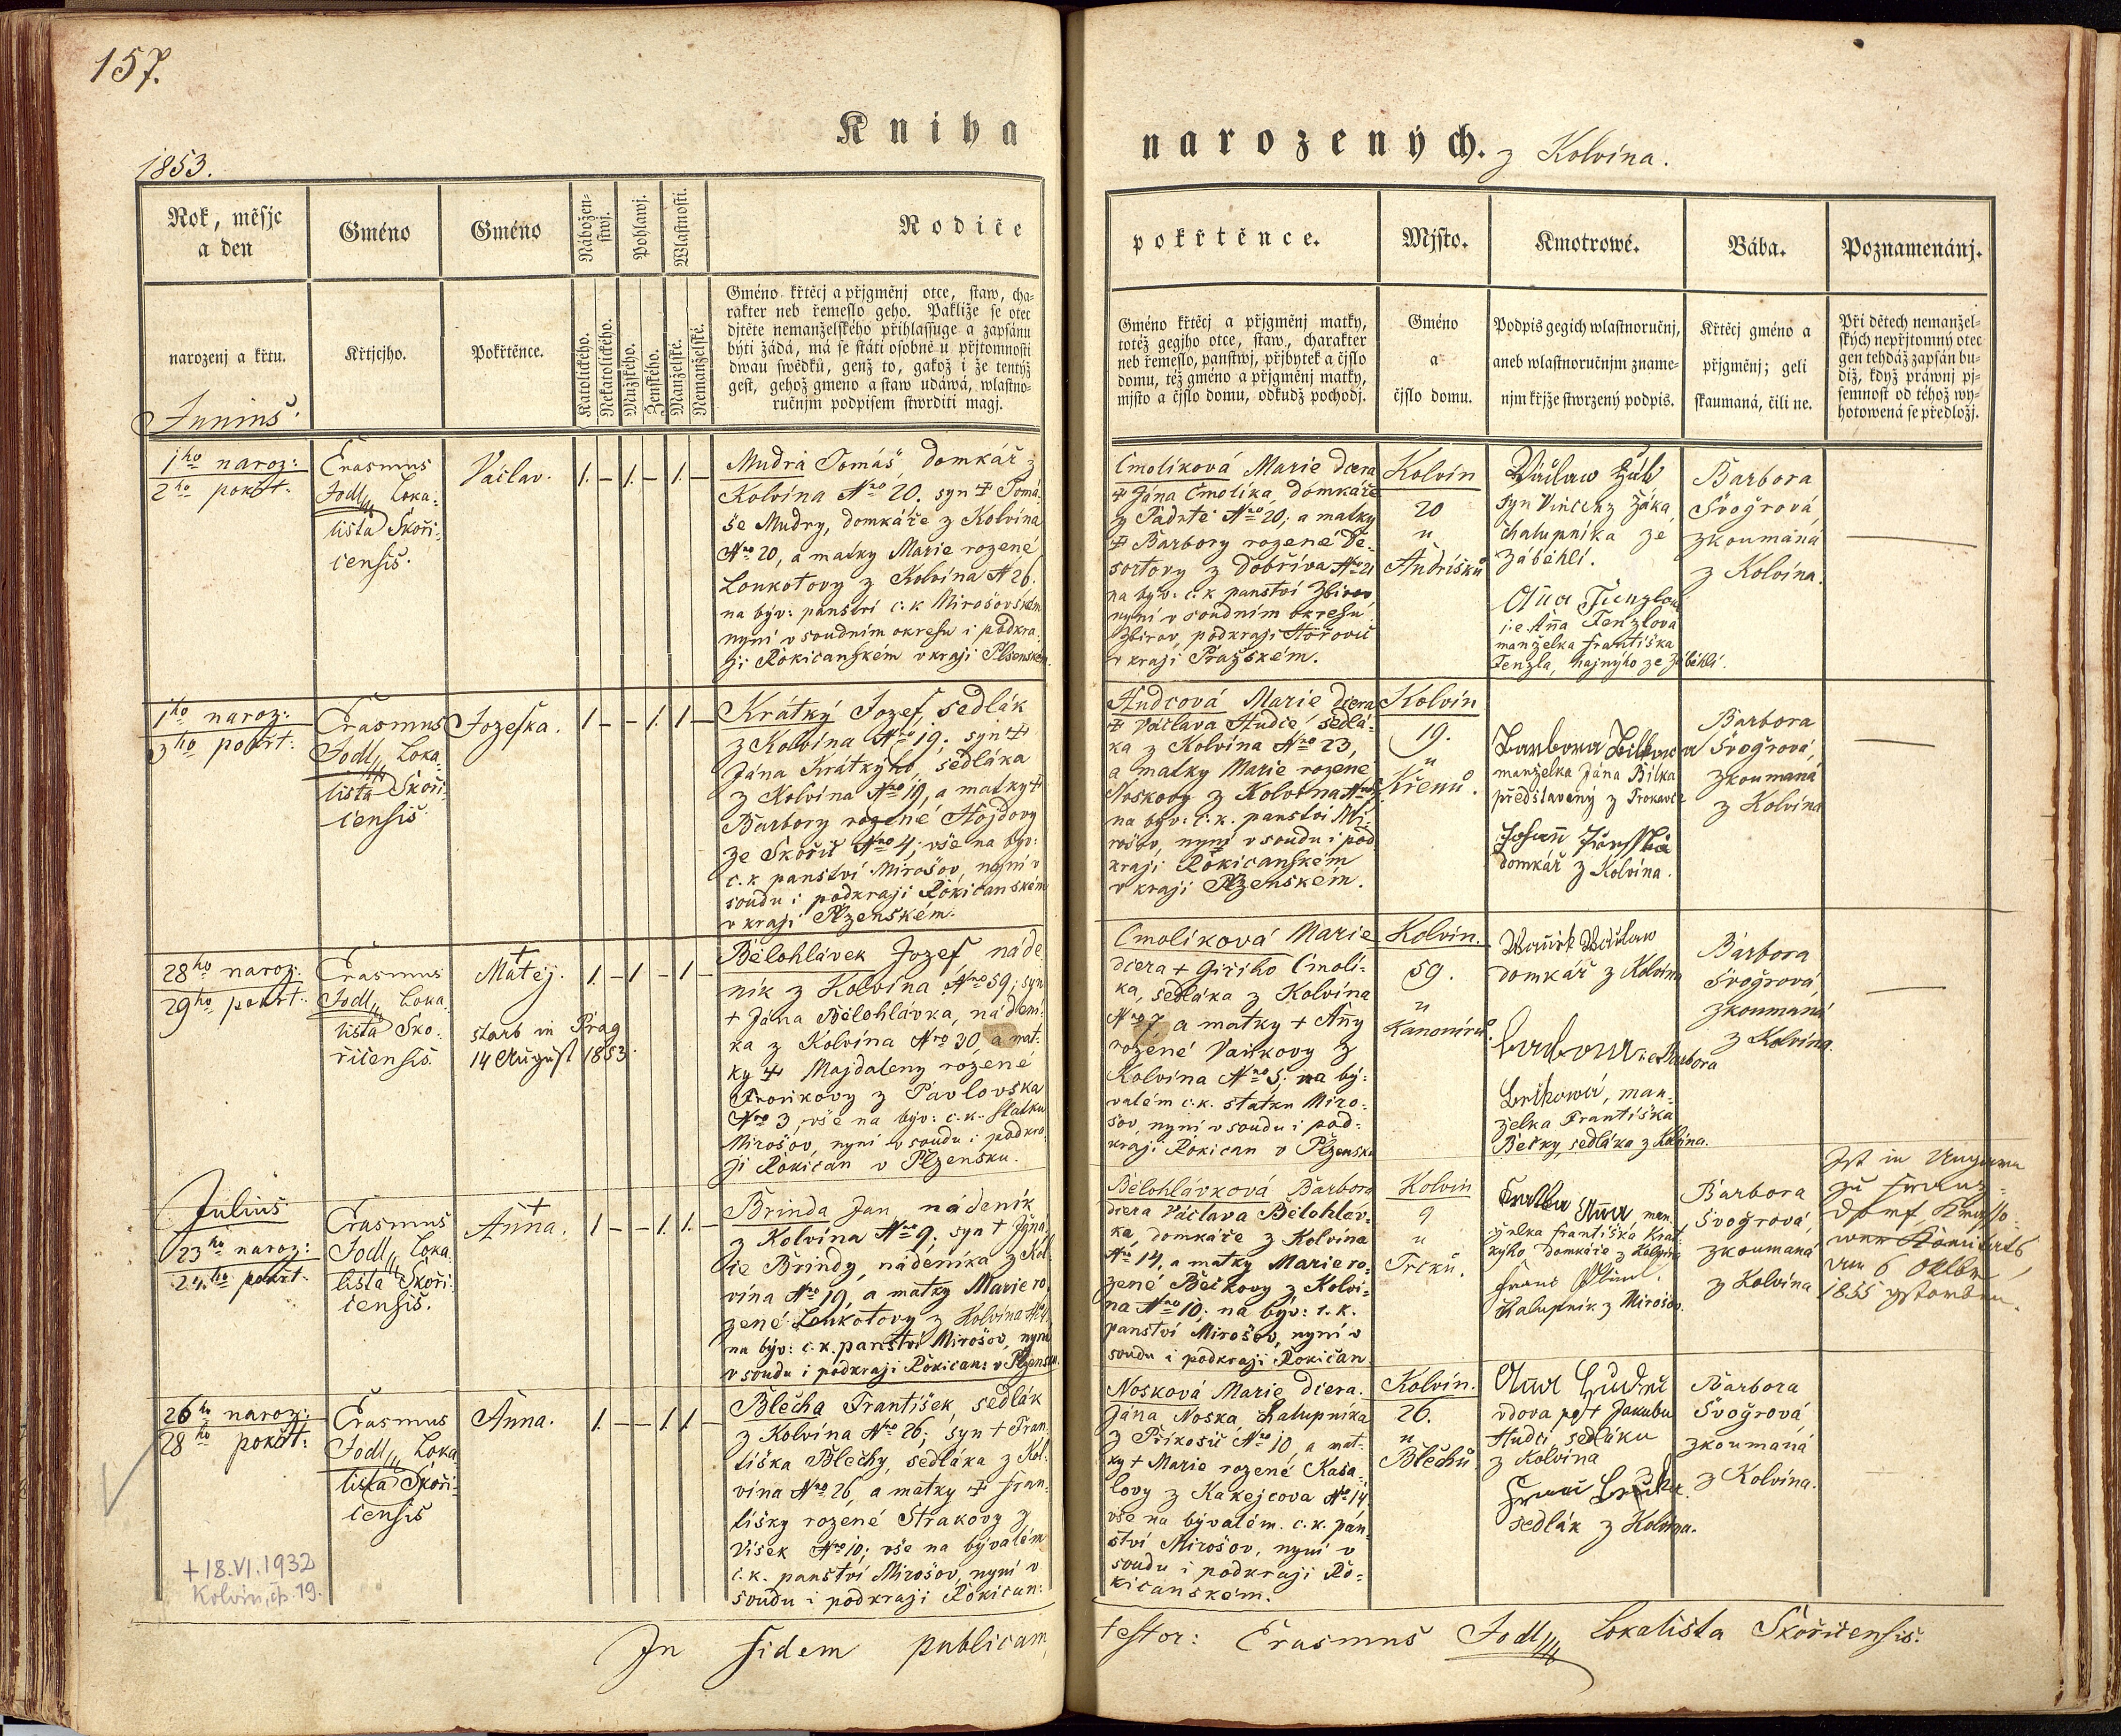 157.
Kniha
narozených. z Kolvína.
1853.
Rok, měsjc
a den
narozenj a křtu.
Gméno
Křtjcjho.
Gméno
Pokřtěnce.
Nábožen-
stwj.
Pohlawj.
Wlastnosti.
Katolického.
Nekatolického.
Mužského.
Ženského.
Manželské.
Nemanželské.
Rodiče
Gméno křtěcj a přjgměnj otce, staw, cha-
rakter neb řemeslo geho. Pakliže se otec
djtěte nemanželského přihlassuge a zapsánu
býti žádá, má se státi osobně u přjtomnosti
dwau swědků, genž to, gakož i že tentýž
gest, gehož gmeno a staw udáwá, wlastno-
ručnjm podpisem stwrditi magj.
pokřtěnce.
Gméno křtěcj a přjgměnj matky,
totéž gegjho otce, staw, charakter
neb řemeslo, panstwj, přjbytek a čjslo
domu, též gméno a přjgměnj matky,
mjsto a čjslo domu, odkudž pochodj.
Mjsto.
Gméno
a
čjslo domu.
Kmotrowé.
Podpis gegich wlastnoručnj,
aneb wlastnoručnjm zname-
njm křjže stwrzený podpis.
Bába.
Křtěcj gméno a
přjgměnj; geli
skaumaná, čili ne.
Poznamenánj.
Při dětech nemanžel-
ských nepřjtomný otec
gen tehdáž zapsán bu-
diž, když práwnj pj-
semnost od téhož wy-
hotowená se předložj.
Junius.
1ho naroz:
2ho pokřt.
Erasmus
Jodl, Loka-
lista Skoři-
censis.
Václav.
1. – 1. – 1. –
Mudra Tomáš, domkář z
Kolvína Nro 20. syn † Tomá-
še Mudry, domkáře z Kolvína
Nro 20, a matky Marie rozené
Loukotovy z Kolvína N 26.
na býv: panství c.k Mirošovském
nyní v soudním okresu i podkra-
ji Rokicanském v kraji Plzenském.
Cmolíková Marie dcera
† Jána Cmolíka, domkáře
z Padrtě Nro 20; a matky
† Barbory rozené De-
sortovy z Dobříva Nro 21
na býv: c.k panství Zbirov
nyní v soudním okresu
Zbirov, podkraji Hořovic
v kraji Pražském.
Kolvín
20
u
Andrišků
Václaw Žák
syn Vincenz Žáka
chalupníka ze
Záběhlí.
Aña Fenzlowa
i.e. Aña Fenzlova
manželka Františka
Fenzla, hajnýho ze Záběhlí.
Barbora
Švogrová,
zkoumaná
z Kolvína.
1ho naroz:
3ho pokřt:
Erasmus
Jodl, Loka-
lista Skoři-
censis
Jozefka.
1 – – 1. 1 –
Krátký Jozef, sedlák
z Kolvína Nro 19; syn †
Jána Krátkýho, sedláka
z Kolvína Nro 19, a matky †
Barbory rozené Hojdovy
ze Skořic Nro 4; vše na býv:
c.k panství Mirošov, nyní v
soudu i podkraji Rokicanském
v kraji Plzenském.
Hudcová Marie dcera
† Václava Hudce sedlá-
ka z Kolvína Nro 23,
a matky Marie rozené
Noskovy z Kolvína
na býv: c.k. panství Mi-
rošov, nyní v soudu i pod-
kraji Rokicanském
v kraji Plzenském.
Kolvín
19.
u
Křenů.
Barbora Bilkowa
manželka Jána Bílka
představený z Trokavce
Johañ
domkář z Kolvína.
Barbora
Švogrová,
zkoumaná
z Kolvína
28ho naroz.
29ho pokřt.
Erasmus
Jodl, Loka-
lista Sko-
řicensis.
†
Matěj.
starb in Prag
14 August 1853.
1. – 1 – 1 –
Bělohlávek Jozef, náde-
ník z Kolvína Nro 59; syn
† Jána Bělohlávka, nádení-
ka z Kolvína Nro 30, a mat-
ky † Majdaleny rozené
z Pavlovska
Nro 3, vše na býv: c.k. statku
Mirošov, nyní v soudu i podkra-
ji Rokican v Plzensku.
Cmolíková Marie
dcera † Giřího Cmolí-
ka, sedláka z Kolvína
Nro 7, a matky † Añy
rozené Vaňkovy z
Kolvína Nro 5; na bý-
valém c.k. statku Miro-
šov, nyní v soudu i pod-
kraji Rokican v Plzensku
Kolvín.
59.
u
Kanonírů.
Waněk Wáclaw
domkář z Kolvína
Barbora i.e Barbora
Bečkowá, man-
želka Františka
Bečky, sedláka z Kolvína.
Barbora
Švogrová
zkoumaná
z Kolvína.
Julius
23ho naroz:
24ho pokřt.
Erasmus
Jodl, Loka-
lista Skoři-
censis.
†
Anna.
1 – – 1. 1. –
Brinda Jan, nádeník
z Kolvína Nro 9; syn † Igná-
ce Brindy, nádeníka z Kol-
vína Nro 19, a matky Marie ro-
zené Loukotovy z Kolvína
na býv: c.k. panství Mirošov, nyní
v soudu i podkraji Rokican: v Plzensku.
Bělohlávková Barbora
dcera Václava Bělohláv-
ka, domkáře z Kolvína
Nro 14, a matky Marie ro-
zené Bečkovy z Kolví-
na Nro 10; na býv: c. k.
panství Mirošov, nyní v
soudu i podkraji Rokican
Kolvín
9
u
Trčků.
Aña man-
želka Františka Krát-
kýho domkáře z Kolvína
Franc
chalupník z Mirošov.
Barbora
Švogrová,
zkoumaná
z Kolvína
Ist in Ungarn
zu Franz-
dorf Krasso-
waer Komitats
am 6 Oktbr
1855 gstorben.
26ho naroz:
28ho pokřt:
Erasmus
Jodl, Loka-
lista Skoři-
censis
Anna.
1. – – 1. 1. –
Blecha František, sedlák
z Kolvína Nro 26; syn † Fran-
tiška Blechy, sedláka z Kol-
vína Nro 26, a matky † Fran-
tišky rozené Strakovy z
Vísek Nro 10; vše na bývalém
c.k. panství Mirošov, nyní v
soudu i podkraji Rokican:
Nosková Marie dcera
Jána Noska chalupníka
z Příkosic Nro 10, a mat-
ky † Marie rozené Kasa-
lovy z Kakejcova Nro 14
vše na bývalém c.k. pan-
ství Mirošov, nyní v
soudu i podkraji Ro-
kicanském.
Kolvín.
26.
u
Blechů
Aña Hudec
vdova po † Jakubu
Hudci sedláku
z Kolvína
sedlák z Kolvína.
Barbora
Švogrová
zkoumaná
z Kolvína.
+ 18.VI.1932
Kolvín, čp. 19.
In fidem publicam
testor: Erasmus Jodl, Lokalista Skořicensis.